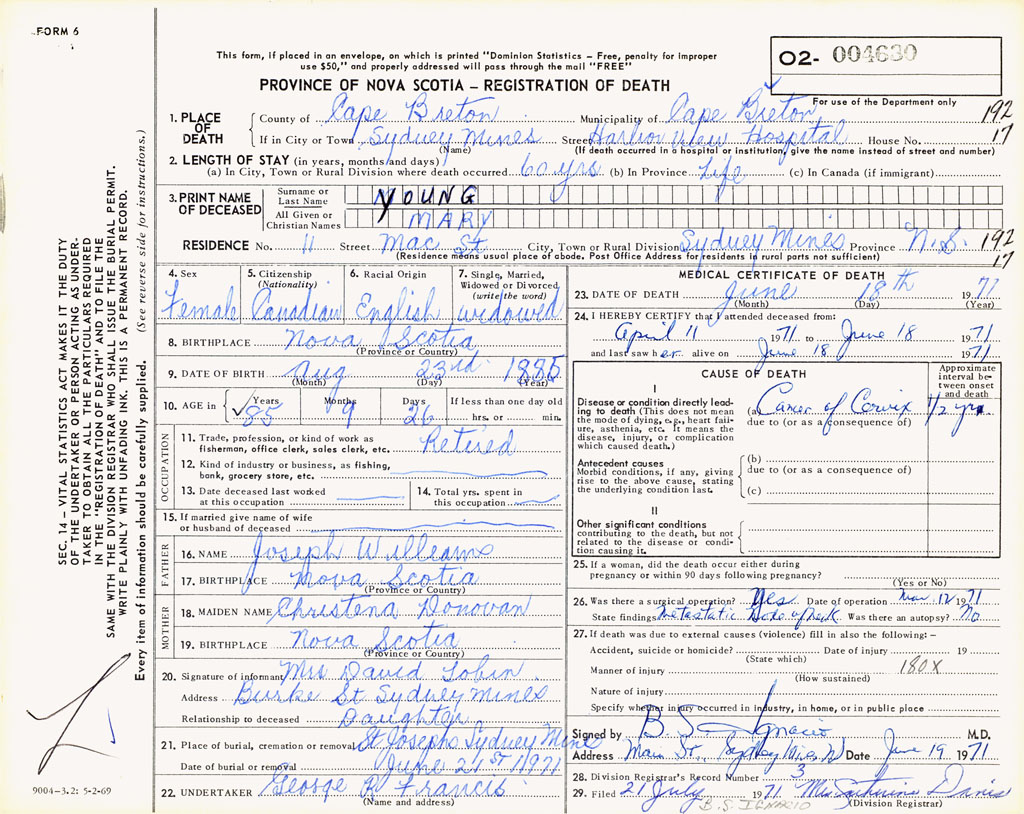 FORM 6
This form, if placed in an envelope, on which is printed "Dominion Statistics – Free, penalty for improper
use $50," and properly addressed will pass through the mail "FREE"
O2- 004630
For use of the Department only
PROVINCE OF NOVA SCOTIA – REGISTRATION OF DEATH
1. PLACE OF DEATH
County of Cape Breton Municipality of Cape Breton 192
If in City or Town Sydney Mines Street Harbor View Hospital House No. 17
(Name) (If death occurred in a hospital or institution, give the name instead of street and number)
2. LENGTH OF STAY (in years, months and days)
(a) In City, Town or Rural Division where death occurred 60 yrs (b) In Province Life (c) In Canada (if immigrant)
3. PRINT NAME OF DECEASED
Surname or Last Name YOUNG
All Given or Christian Names MARY
RESIDENCE No. 11 Street Mac St. City, Town or Rural Division Sydney Mines Province N.S. 192
(Residence means usual place of abode. Post Office Address for residents in rural parts not sufficient) 17
4. Sex Female
5. Citizenship (Nationality) Canadian
6. Racial Origin English
7. Single, Married, Widowed or Divorced (write the word) widowed
8. BIRTHPLACE Nova Scotia
(Province or Country)
9. DATE OF BIRTH Aug 23rd 1885
(Month) (Day) (Year)
10. AGE in Years 85 Months 9 Days 26 If less than one day old
hrs. or min.
OCCUPATION
11. Trade, profession, or kind of work as
fisherman, office clerk, sales clerk, etc. Retired
12. Kind of industry or business, as fishing,
bank, grocery store, etc.
13. Date deceased last worked
at this occupation
14. Total yrs. spent in
this occupation
15. If married give name of wife
or husband of deceased
FATHER
16. NAME Joseph Williams
17. BIRTHPLACE Nova Scotia
(Province or Country)
MOTHER
18. MAIDEN NAME Christena Donovan
19. BIRTHPLACE Nova Scotia
(Province or Country)
20. Signature of informant Mrs David Tobin
Address Burke St Sydney Mines
Relationship to deceased Daughter
21. Place of burial, cremation or removal St Josephs Sydney Mines
Date of burial or removal June 21st 1971
22. UNDERTAKER George R Francis
(Name and address)
MEDICAL CERTIFICATE OF DEATH
23. DATE OF DEATH June 18th 1971
(Month) (Day) (Year)
24. I HEREBY CERTIFY that I attended deceased from:
April 11 1971 to June 18 1971
and last saw her alive on June 18 1971
CAUSE OF DEATH
Approximate interval between onset and death
I
Disease or condition directly leading to death (This does not mean
the mode of dying, e.g., heart failure, asthenia, etc. It means the
disease, injury, or complication
which caused death.)
(a) Cancer of Cervix 1/2 yr.
due to (or as a consequence of)
Antecedent causes
Morbid conditions, if any, giving
rise to the above cause, stating
the underlying condition last.
(b)
due to (or as a consequence of)
(c)
II
Other significant conditions
contributing to the death, but not
related to the disease or condition causing it.
25. If a woman, did the death occur either during
pregnancy or within 90 days following pregnancy?
(Yes or No)
26. Was there a surgical operation? Yes Date of operation Mar. 12 1971
State findings Metastatic Node of Neck Was there an autopsy? No
27. If death was due to external causes (violence) fill in also the following: –
Accident, suicide or homicide? Date of injury 19
(State which)
Manner of injury 180X
(How sustained)
Nature of injury
Specify whether injury occurred in industry, in home, or in public place
Signed by B. S. Ignacio M.D.
Address Main St., Sydney Mines, N Date June 19 1971
28. Division Registrar's Record Number 3
29. Filed 21 July 1971 Mrs Davis
B.S. IGNACIO (Division Registrar)
SEC. 14 – VITAL STATISTICS ACT MAKES IT THE DUTY
OF THE UNDERTAKER OR PERSON ACTING AS UNDER-
TAKER TO OBTAIN ALL THE PARTICULARS REQUIRED
IN THE "REGISTRATION OF DEATH" AND TO FILE THE
SAME WITH THE DIVISION REGISTRAR WHO SHALL ISSUE THE BURIAL PERMIT.
WRITE PLAINLY WITH UNFADING INK. THIS IS A PERMANENT RECORD.
Every item of information should be carefully supplied. (See reverse side for instructions.)
9004–3.2: 5-2-69